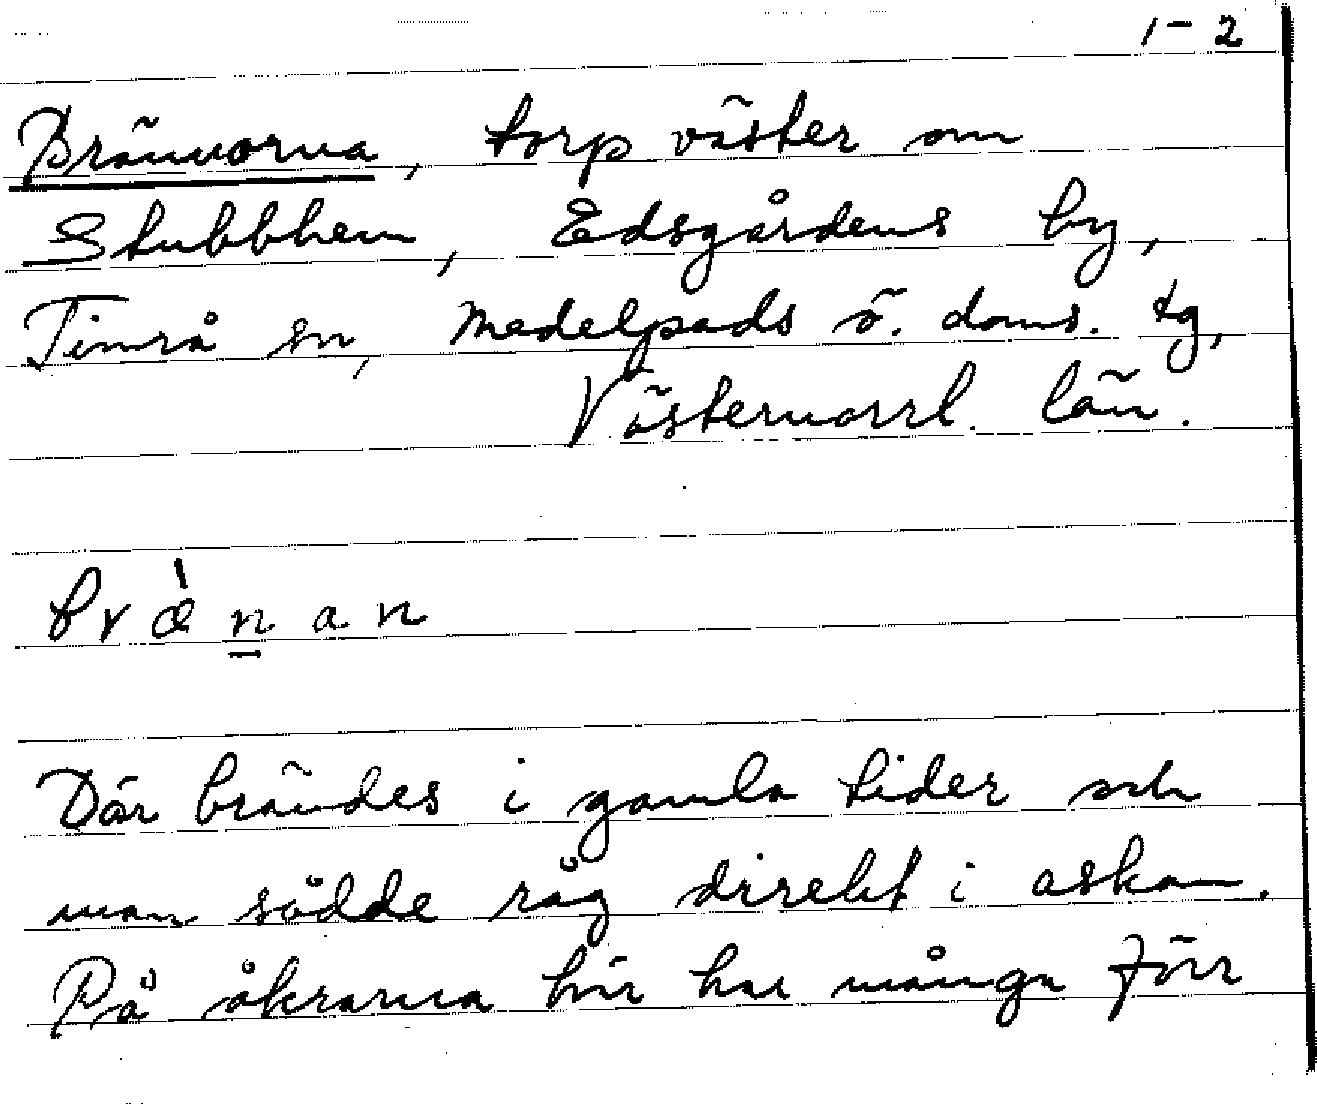 1-2
Brännorna, torp väster om
Stubbhem, Edsgårdens by,
Timrå sn, Medelpads ö. doms. tg,
Västernorrl. län.
brænan
Där brändes i gamla tider och
man sådde råg direkt i askan.
På åkrarna här har många förr